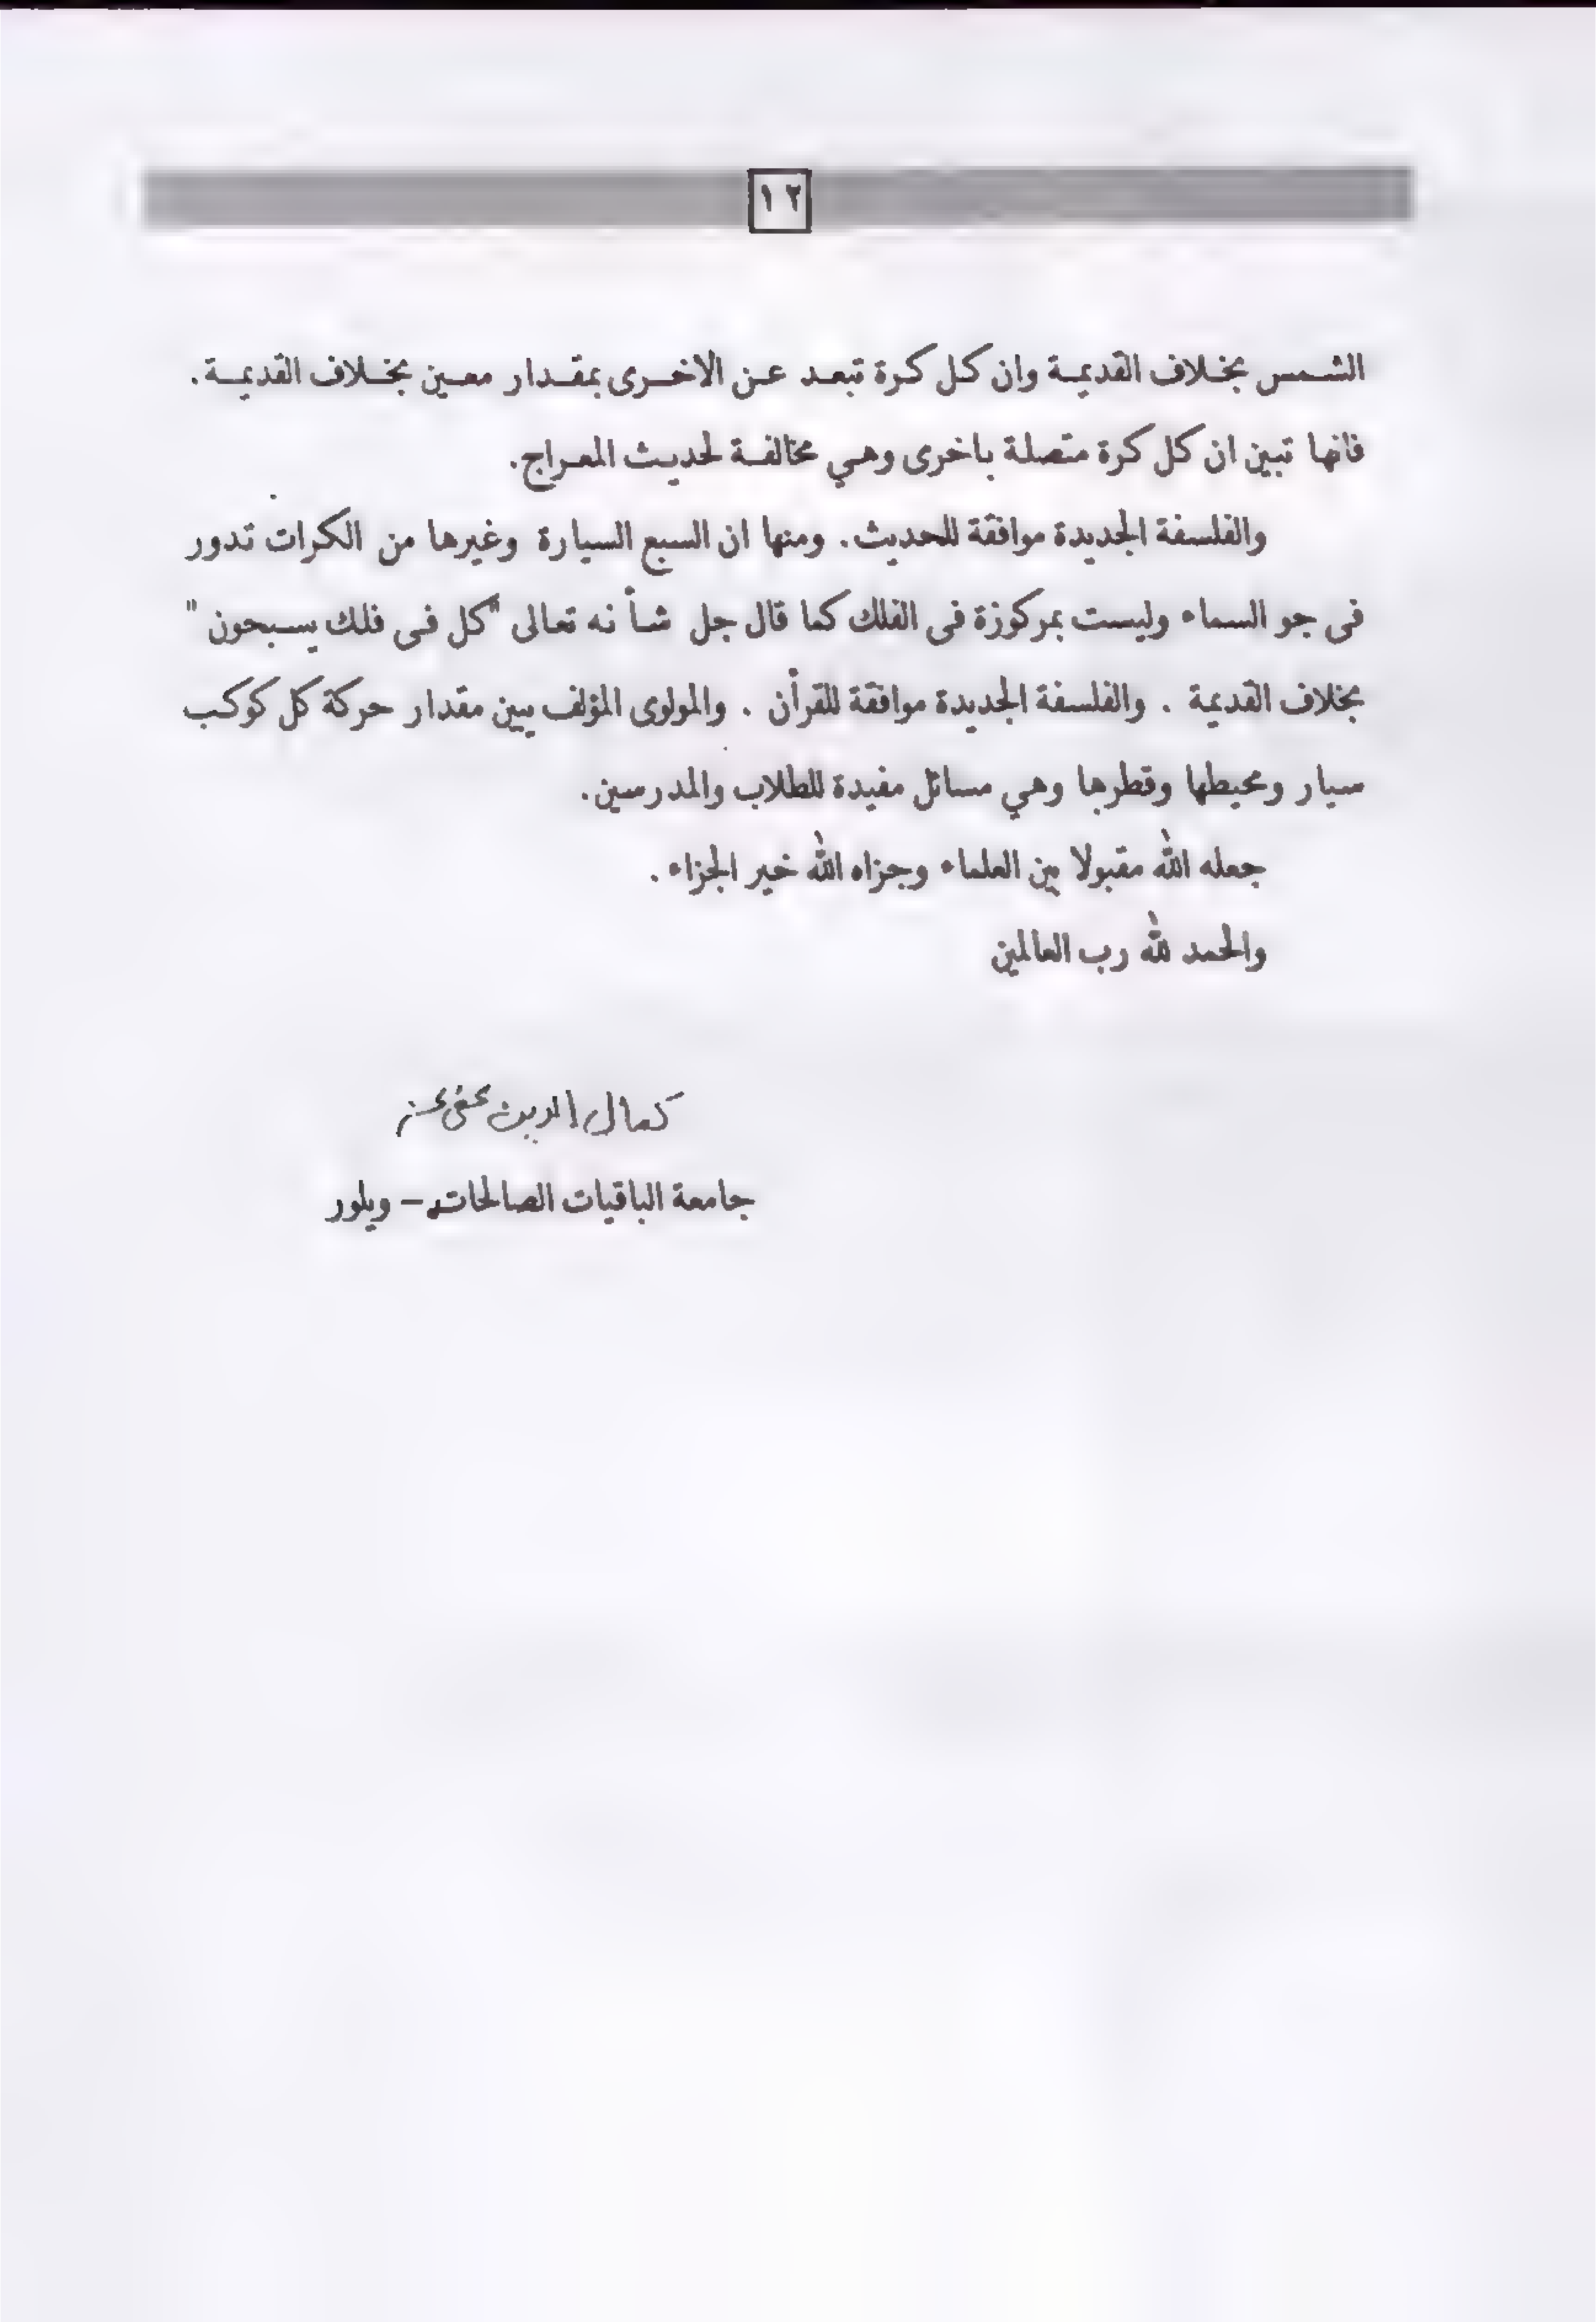 ١٢
الشمس بخلاف القديمة وان كل كرة تبعد عن الاخرى بمقدار معين بخلاف القديمة.
فانها تبين ان كل كرة متصلة باخرى وهي مخالفة لحديث المعراج.
والفلسفة الجديدة موافقة للحديث. ومنها ان السبع السيارة وغيرها من الكرات تدور
فى جو السماء وليست بمركوزة فى الفلك كما قال جل شأ نه تعالى "كل فى فلك يسبحون"
بخلاف القديمة . والفلسفة الجديدة موافقة للقرأن . والمولوى المؤلف يبين مقدار حركة كل كوكب
سيار ومحيطها وقطرها وهي مسائل مفيدة للطلاب والمدرسين.
جعله الله مقبولا بين العلماء وجزاه الله خير الجزاء .
والحمد لله رب العالمين
كمال الدين
جامعة الباقيات الصالحات – ويلور